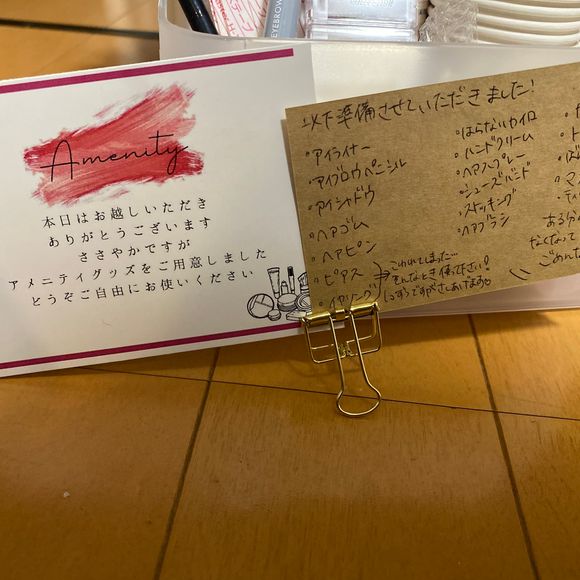 EYEBROW
Amenity
本日はお越しいただき
ありがとうございます
ささやかですが
アメニティグッズをご用意しました
どうぞご自由にお使いください
以下準備させていただきました!
・アイライナー
・アイブロウペンシル
・アイシャドウ
・ヘアゴム
・ヘアピン
・ピアス
・イヤリング
こわれてしまった…
そんなとき使って下さい!
1つずつですがさしあげます
・はらないカイロ
・ハンドクリーム
・ヘアスプレー
・シューズバンド
・ストッキング
・ヘアブラシ
ある分
なくなって
ごめんな